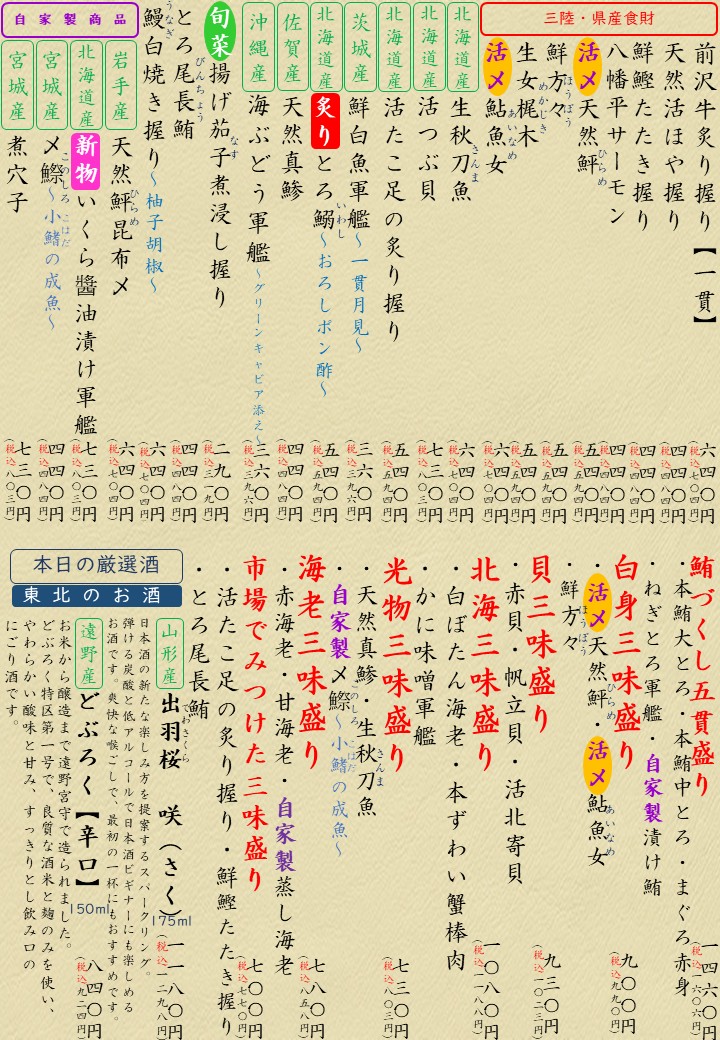 三陸・県産食財
前沢牛炙り握り【一貫】 六四〇円 (税込七〇四円)
天然活ほや握り 四四〇円 (税込四八四円)
鮮鰹たたき握り 四四〇円 (税込四八四円)
八幡平サーモン 四四〇円 (税込四八四円)
活〆 天然鮃 ひらめ 五四〇円 (税込五九四円)
鮮方々 ほうぼう 五四〇円 (税込五九四円)
生女梶木 めかじき 五四〇円 (税込五九四円)
活〆 鮎魚女 あいなめ 六四〇円 (税込七〇四円)
北海道産 生秋刀魚 さんま 六四〇円 (税込七〇四円)
北海道産 活つぶ貝 七三〇円 (税込八〇三円)
北海道産 活たこ足の炙り握り 五四〇円 (税込五九四円)
茨城産 鮮白魚軍艦～一貫月見～ 三六〇円 (税込三九六円)
北海道産 炙り とろ鰯 いわし ～おろしポン酢～ 五四〇円 (税込五九四円)
佐賀産 天然真鯵 四四〇円 (税込四八四円)
沖縄産 海ぶどう軍艦～グリーンキャビア添え～ 三六〇円 (税込三九六円)
旬菜 揚げ茄子煮浸し握り なす 二九〇円 (税込三一九円)
とろ尾長鮪 びんちょう 四四〇円 (税込四八四円)
鰻白焼き握り うなぎ ～柚子胡椒～ 六四〇円 (税込七〇四円)
自家製商品
岩手産 天然鮃昆布〆 ひらめ 六四〇円 (税込七〇四円)
北海道産 新物 いくら醬油漬け軍艦 七三〇円 (税込八〇三円)
宮城産 〆鰶 このしろ ～小鰭の成魚～ こはだ 四四〇円 (税込四八四円)
宮城産 煮穴子 七三〇円 (税込八〇三円)
鮪づくし五貫盛り 一四六〇円 (税込一六〇六円)
・本鮪大とろ・本鮪中とろ・まぐろ赤身
・ねぎとろ軍艦・自家製漬け鮪
白身三味盛り 九〇〇円 (税込九九〇円)
・活〆 天然鮃 ひらめ ・活〆 鮎魚女 あいなめ
・鮮方々 ほうぼう
貝三味盛り 九三〇円 (税込一〇二三円)
・赤貝・帆立貝・活北寄貝
北海三味盛り 一〇八〇円 (税込一一八八円)
・白ぼたん海老・本ずわい蟹棒肉
・かに味噌軍艦
光物三味盛り 七三〇円 (税込八〇三円)
・天然真鯵・生秋刀魚 さんま
・自家製〆鰶 このしろ ～小鰭の成魚～ こはだ
海老三味盛り 七八〇円 (税込八五八円)
・赤海老・甘海老・自家製蒸し海老
市場でみつけた三味盛り 七〇〇円 (税込七七〇円)
・活たこ足の炙り握り・鮮鰹たたき握り
・とろ尾長鮪
本日の厳選酒
東北のお酒
山形産 出羽桜 でわさくら 咲(さく) 175ml 一一八〇円 (税込一二九八円)
日本酒の新たな楽しみ方を提案するスパークリング。
弾ける炭酸と低アルコールで日本酒ビギナーにも楽しめる
お酒です。爽快な喉ごしで、最初の一杯にもおすすめです。
遠野産 どぶろく【辛口】 150ml 八四〇円 (税込九二四円)
お米から醸造まで遠野宮守で造られました。
どぶろく特区第一号で、良質な酒米と麹のみを使い、
やわらかい酸味と甘み、すっきりとし飲み口の
にごり酒です。